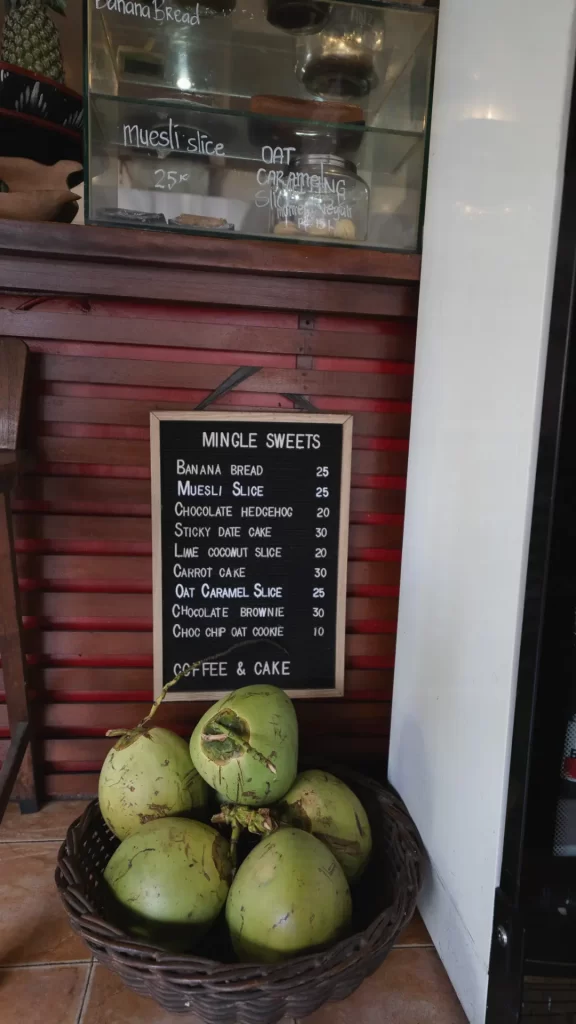 Banana Bread
muesli slice
25K
OAT
CARAMEL
MINGLE SWEETS
BANANA BREAD 25
MUESLI SLICE 25
CHOCOLATE HEDGEHOG 20
STICKY DATE CAKE 30
LIME COCONUT SLICE 20
CARROT CAKE 30
OAT CARAMEL SLICE 25
CHOCOLATE BROWNIE 30
CHOC CHIP OAT COOKIE 10
COFFEE & CAKE